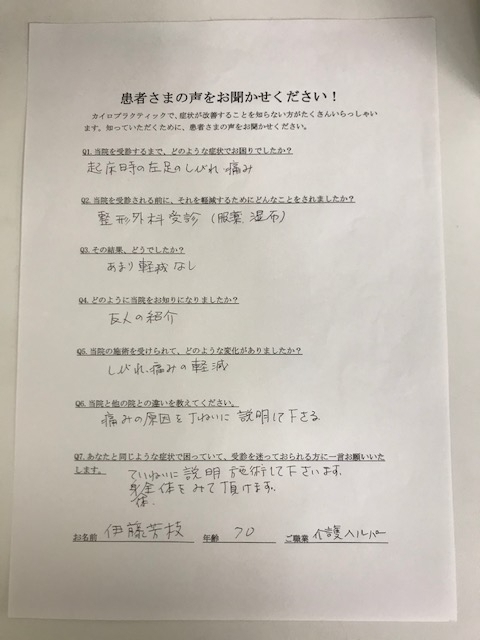 患者さまの声をお聞かせください！
カイロプラクティックで、症状が改善することを知らない方がたくさんいらっしゃい
ます。知っていただくために、患者さまの声をお聞かせください。
Q1.当院を受診するまで、どのような症状でお困りでしたか？
起床時の左足のしびれ、痛み
Q2.当院を受診される前に、それを軽減するためにどんなことをされましたか？
整形外科受診（服薬、湿布）
Q3.その結果、どうでしたか？
あまり軽減なし
Q4.どのように当院をお知りになりましたか？
友人の紹介
Q5.当院の施術を受けられて、どのような変化がありましたか？
しびれ、痛みの軽減
Q6.当院と他の院との違いを教えてください。
痛みの原因を丁ねいに説明して下さる
Q7.あなたと同じような症状で困っていて、受診を迷っておられる方に一言お願いいた
します。
ていねいに説明 施術して下さいます。
身全体をみて頂けます。
体
お名前 伊藤芳枝 年齢 70 ご職業 介護ヘルパー